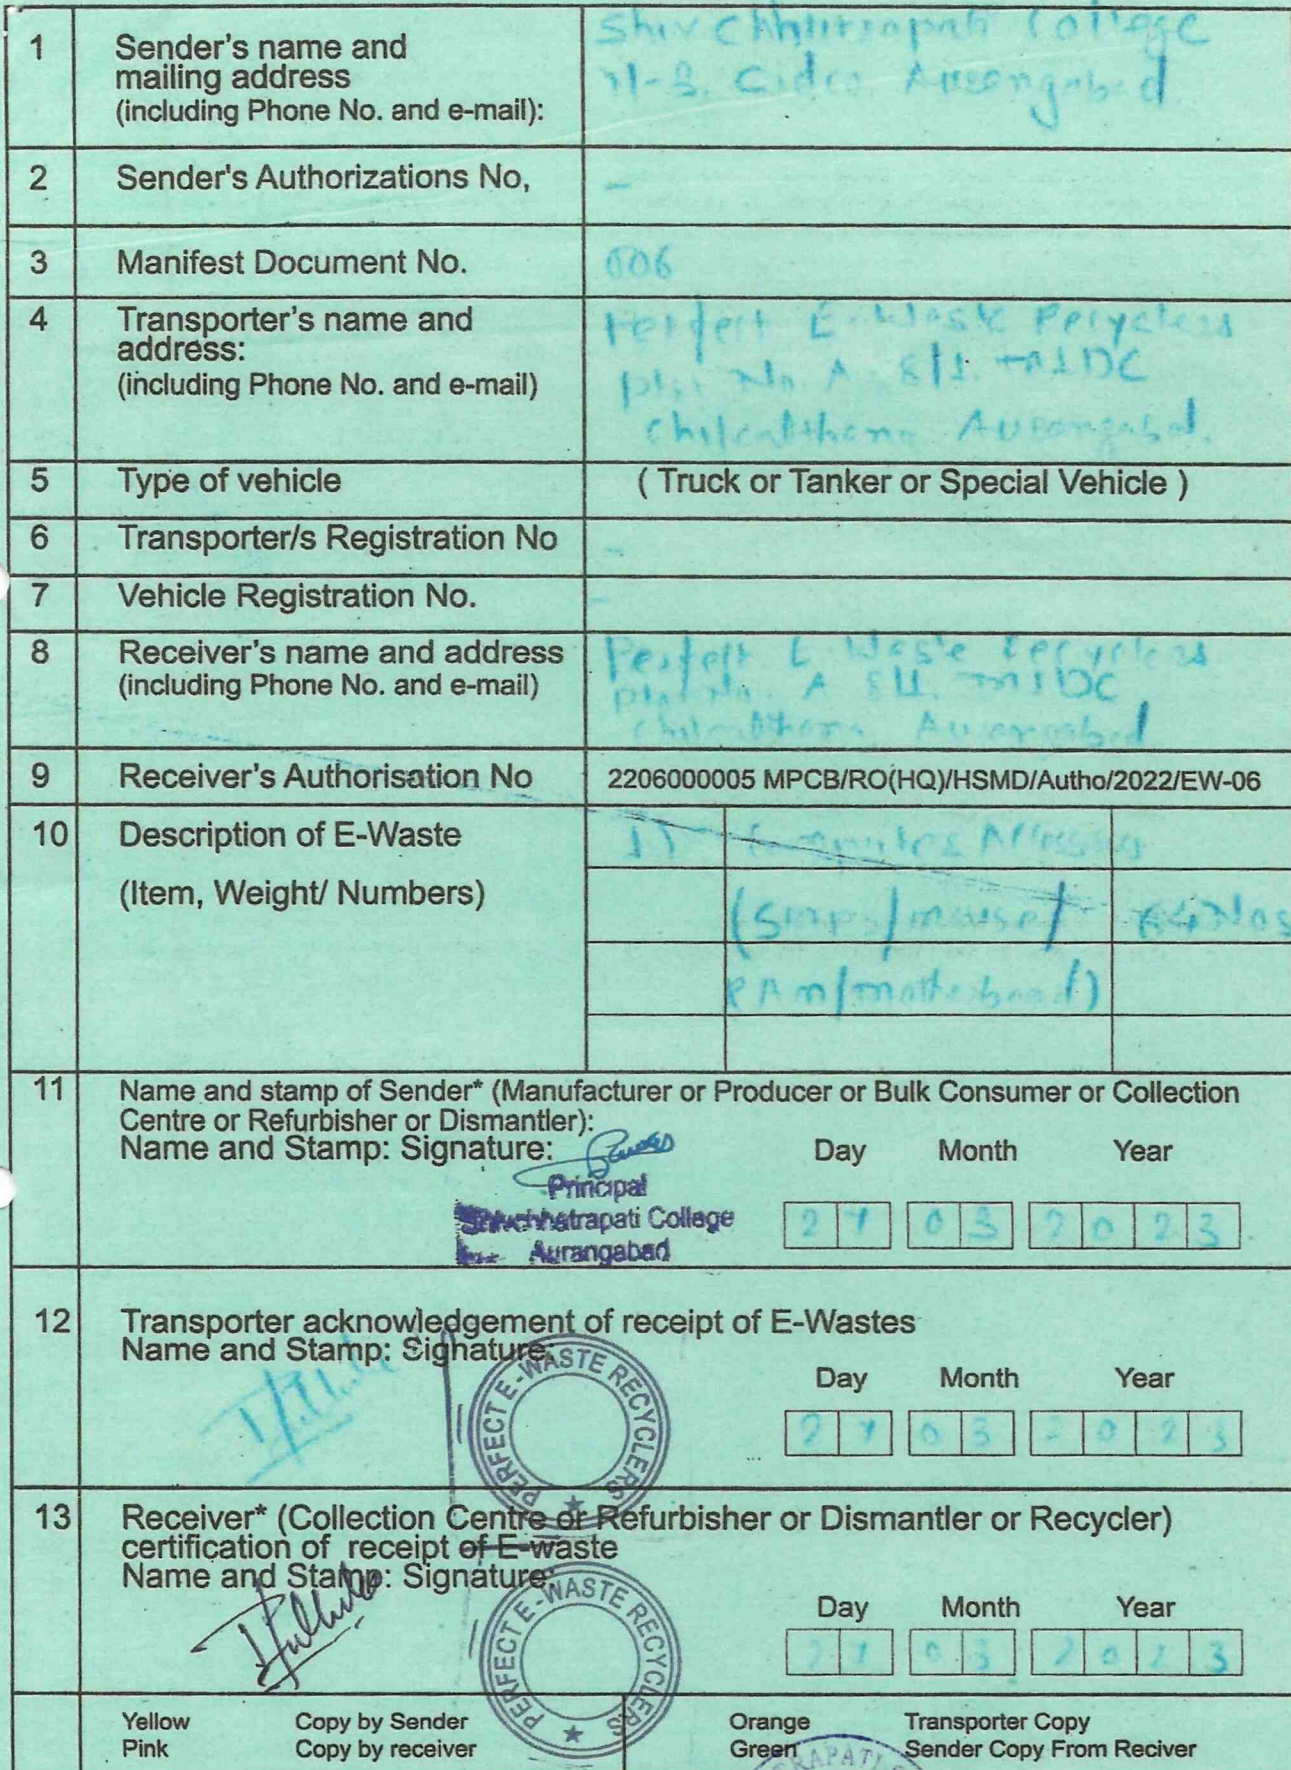 1 Sender's name and
mailing address
(including Phone No. and e-mail):
Shiv Chhatrapati College
N-3, Cidco, Aurangabad.
2 Sender's Authorizations No, -
3 Manifest Document No. 006
4 Transporter's name and
address:
(including Phone No. and e-mail)
Perfect E-Waste Recyclers
Plot No. A 8/1. MIDC
Chikalthana Aurangabad.
5 Type of vehicle ( Truck or Tanker or Special Vehicle )
6 Transporter/s Registration No -
7 Vehicle Registration No. -
8 Receiver's name and address
(including Phone No. and e-mail)
Perfect E Waste Recyclers
Plot No. A 8/1. MIDC
Chikalthana Aurangabad
9 Receiver's Authorisation No 2206000005 MPCB/RO(HQ)/HSMD/Autho/2022/EW-06
10 Description of E-Waste
(Item, Weight/ Numbers)
1) Computer
(SMPS/mouse/ Nos
RAM/motherboard)
11 Name and stamp of Sender* (Manufacturer or Producer or Bulk Consumer or Collection
Centre or Refurbisher or Dismantler):
Name and Stamp: Signature:
Day Month Year
Principal
Shivchhatrapati College
Aurangabad
27 03 2023
12 Transporter acknowledgement of receipt of E-Wastes
Name and Stamp: Signature:
PERFECT E-WASTE RECYCLERS
Day Month Year
27 03 2023
13 Receiver* (Collection Centre or Refurbisher or Dismantler or Recycler)
certification of receipt of E-waste
Name and Stamp: Signature:
PERFECT E-WASTE RECYCLERS
Day Month Year
27 03 2023
Yellow Copy by Sender Orange Transporter Copy
Pink Copy by receiver Green Sender Copy From Reciver